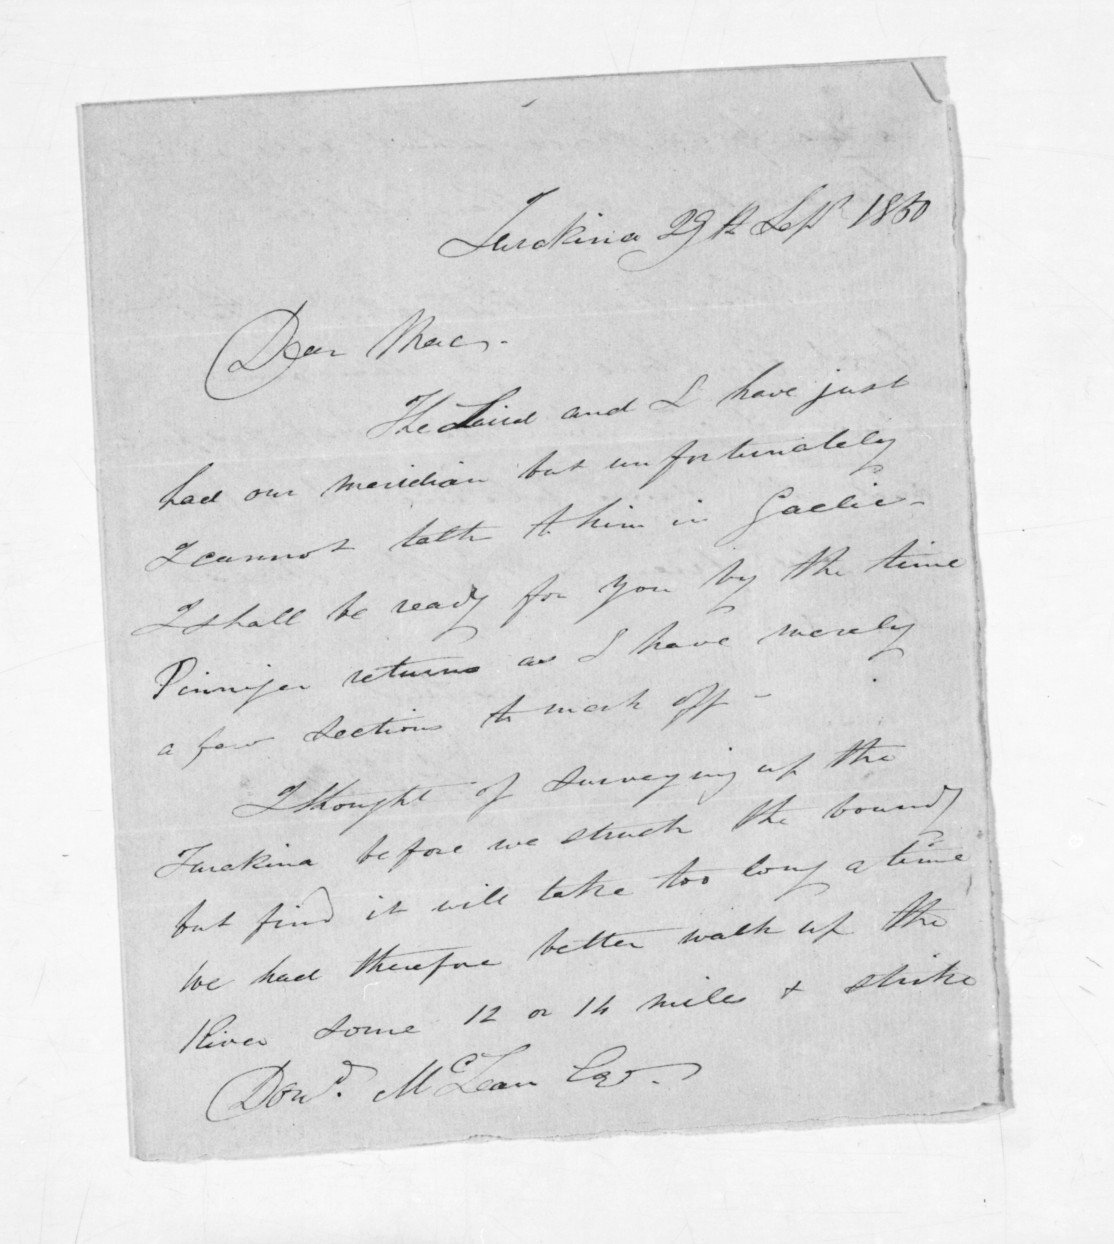 Turakina 29th Sept 1850
Dear Mac,
The Laird and I have just
had our meridian but unfortunately
I cannot talk to him in Gaelic -
I shall be ready for you by the time
Pinniger returns as I have merely
a few sections to mark off -
I thought of surveying up the
Turakina before we struck the boundy
but find it will take too long a time
We had therefore better walk up the
River some 12 or 14 miles & strike
Dond. McLean Esqr.